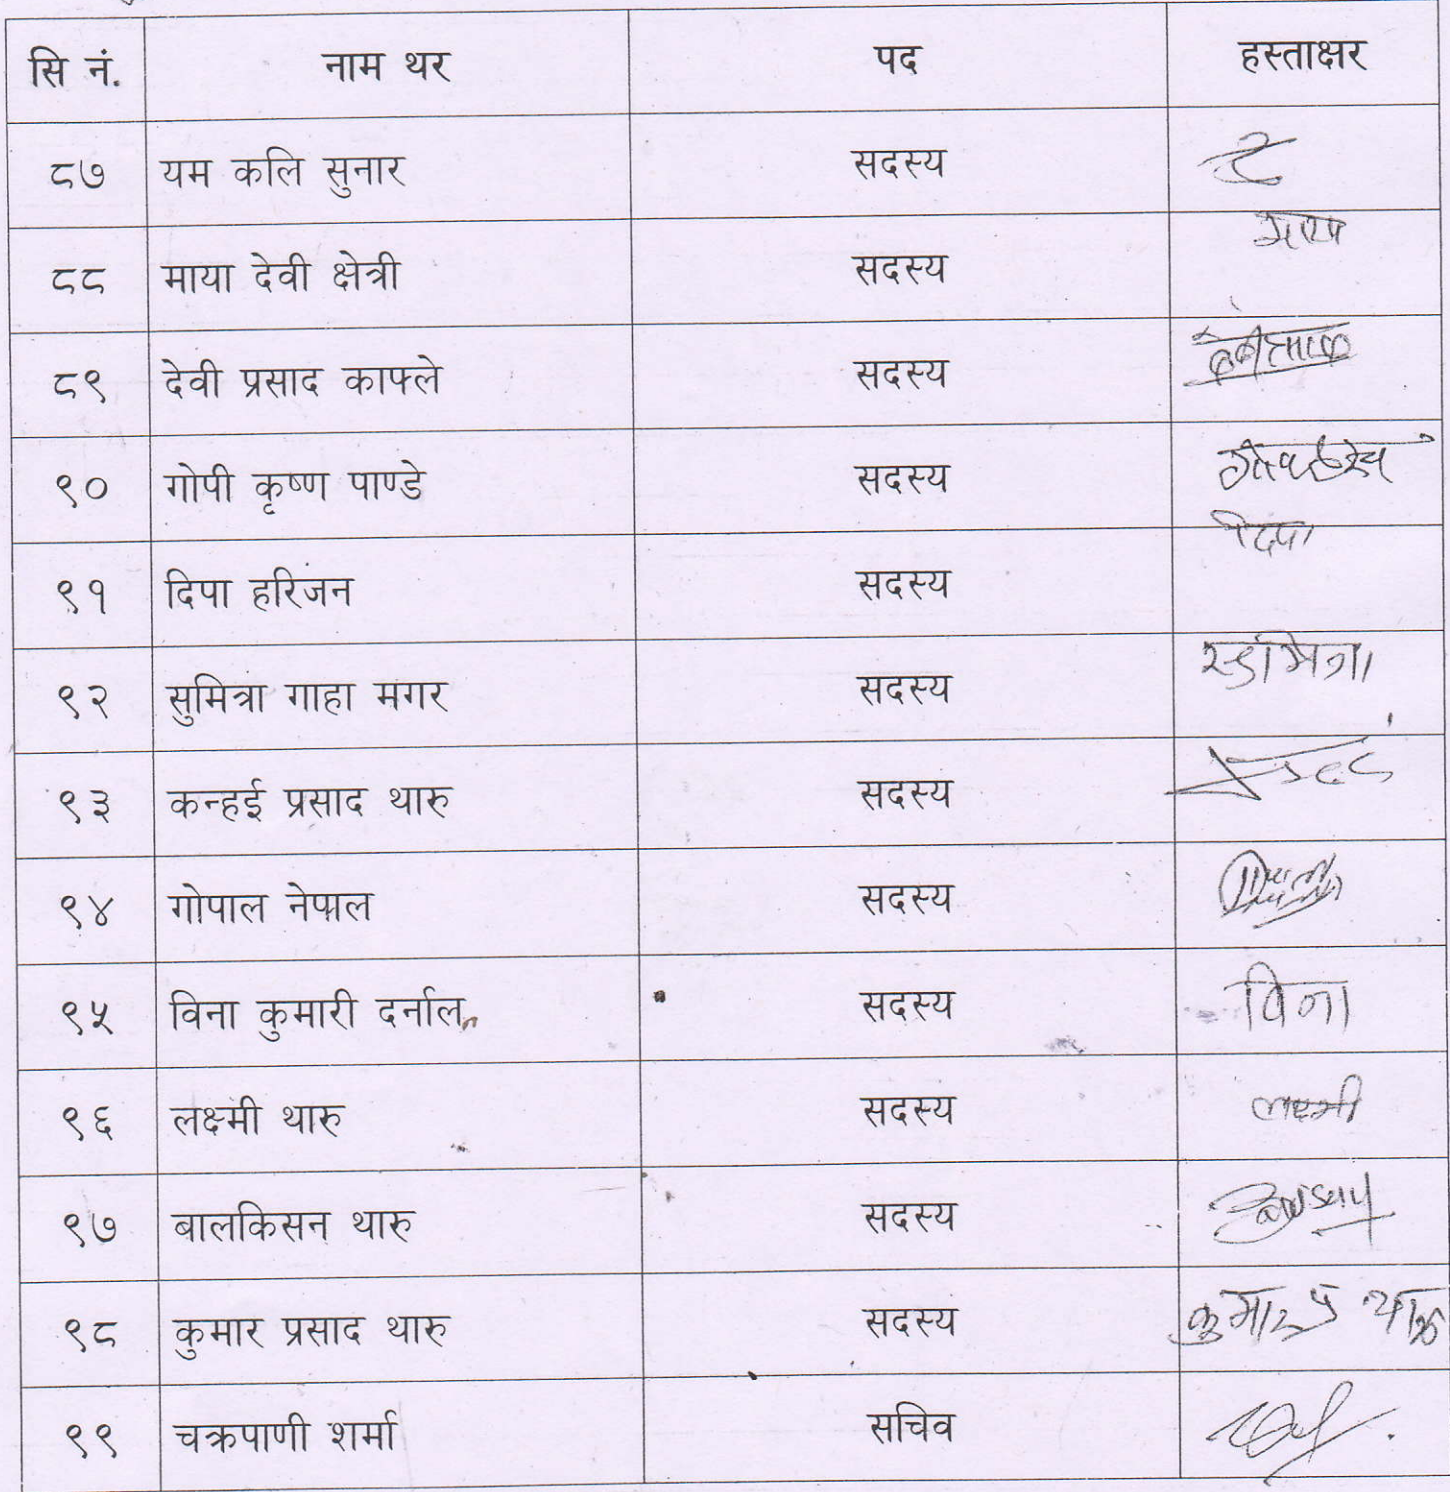 सि नं. नाम थर पद हस्ताक्षर
८७ यम कलि सुनार सदस्य
८८ माया देवी क्षेत्री सदस्य
८९ देवी प्रसाद काफ्ले सदस्य
९० गोपी कृष्ण पाण्डे सदस्य
९१ दिपा हरिजन सदस्य दिपा
९२ सुमित्रा गाहा मगर सदस्य
९३ कन्हई प्रसाद थारु सदस्य
९४ गोपाल नेपाल सदस्य
९५ विना कुमारी दर्नाल सदस्य विना
९६ लक्ष्मी थारु सदस्य लक्ष्मी
९७ बालकिसन थारु सदस्य
९८ कुमार प्रसाद थारु सदस्य कुमार प्र थारु
९९ चक्रपाणी शर्मा सचिव